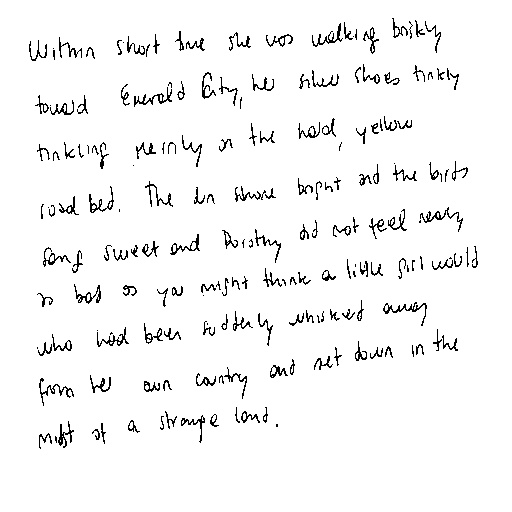 Within short time she was walking briskly
toward Emerald City, her silver shoes tinkly
tinkling merrily on the hard, yellow
road bed. The sun shone bright and the birds
sang sweet and Dorothy did not feel nearly
so bad as you might think a little girl would
who had been suddenly whisked away
from her own country and set down in the
midst of a strange land.